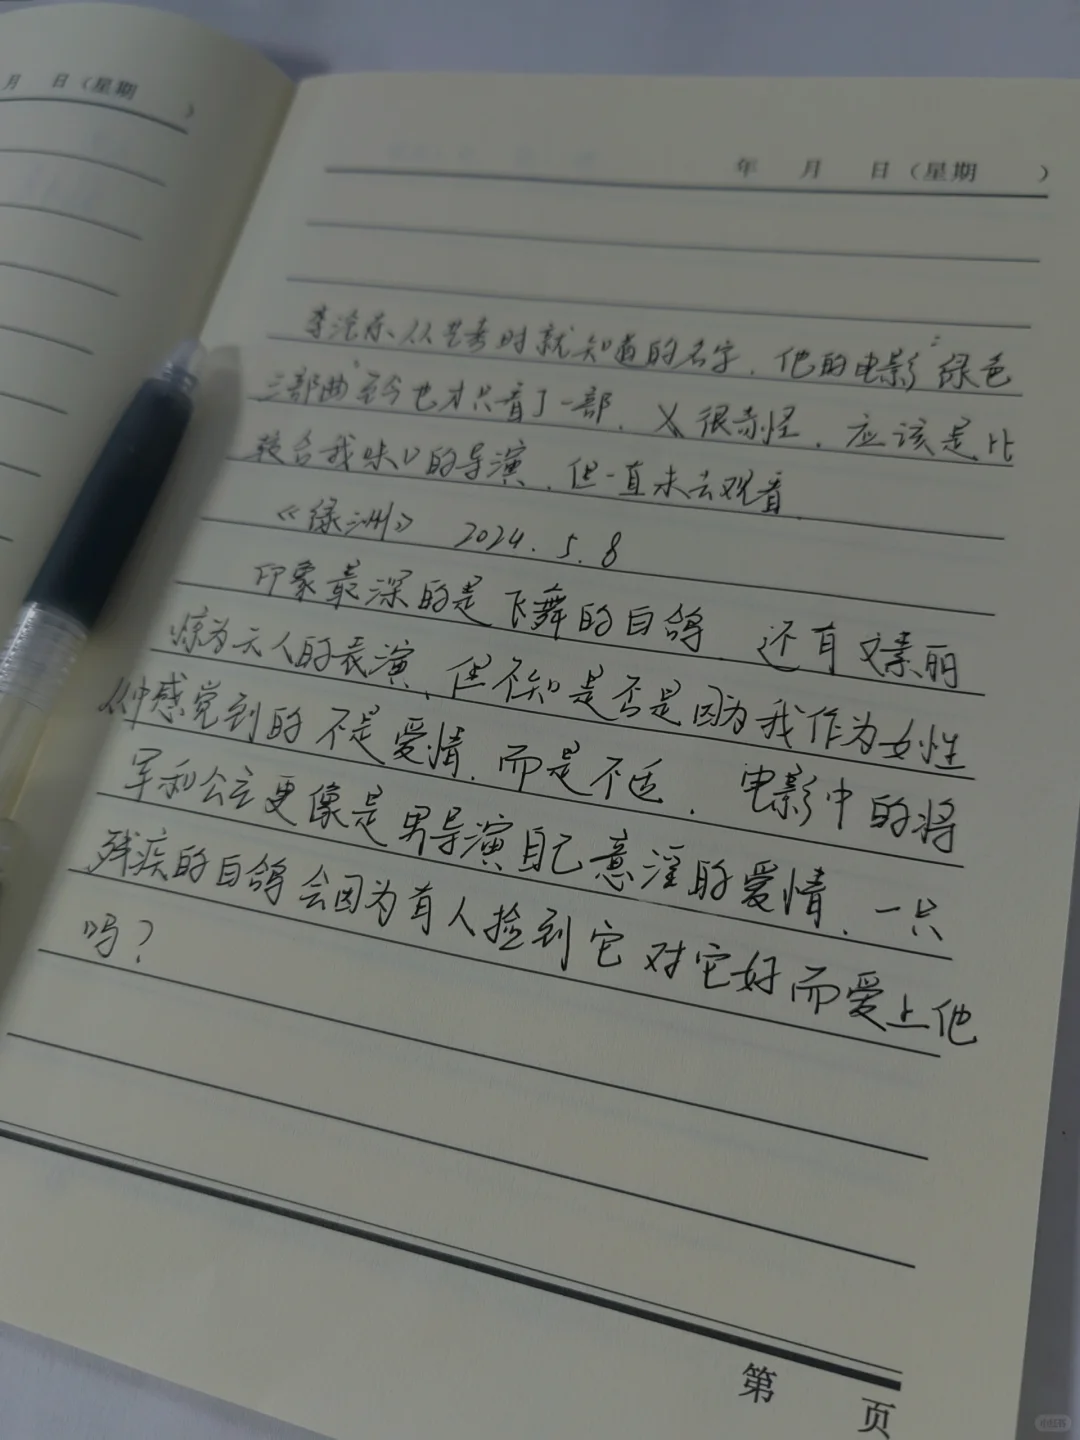 月 日（星期 ）
年 月 日（星期 ）
李沧东、从艺考时就知道的名字，他的电影“绿色
三部曲”至今也才只看了一部，很奇怪，应该是比
较合我味口的导演，但一直未去观看
《绿洲》 2024.5.8
印象最深的是飞舞的白鸽，还有文素丽
惊为天人的表演，但不知是否是因为我作为女性
从中感觉到的不是爱情，而是不适，电影中的将
军和公主更像是男导演自己意淫的爱情，一只
残疾的白鸽会因为有人捡到它对它好而爱上他
吗？
第 页
小红书